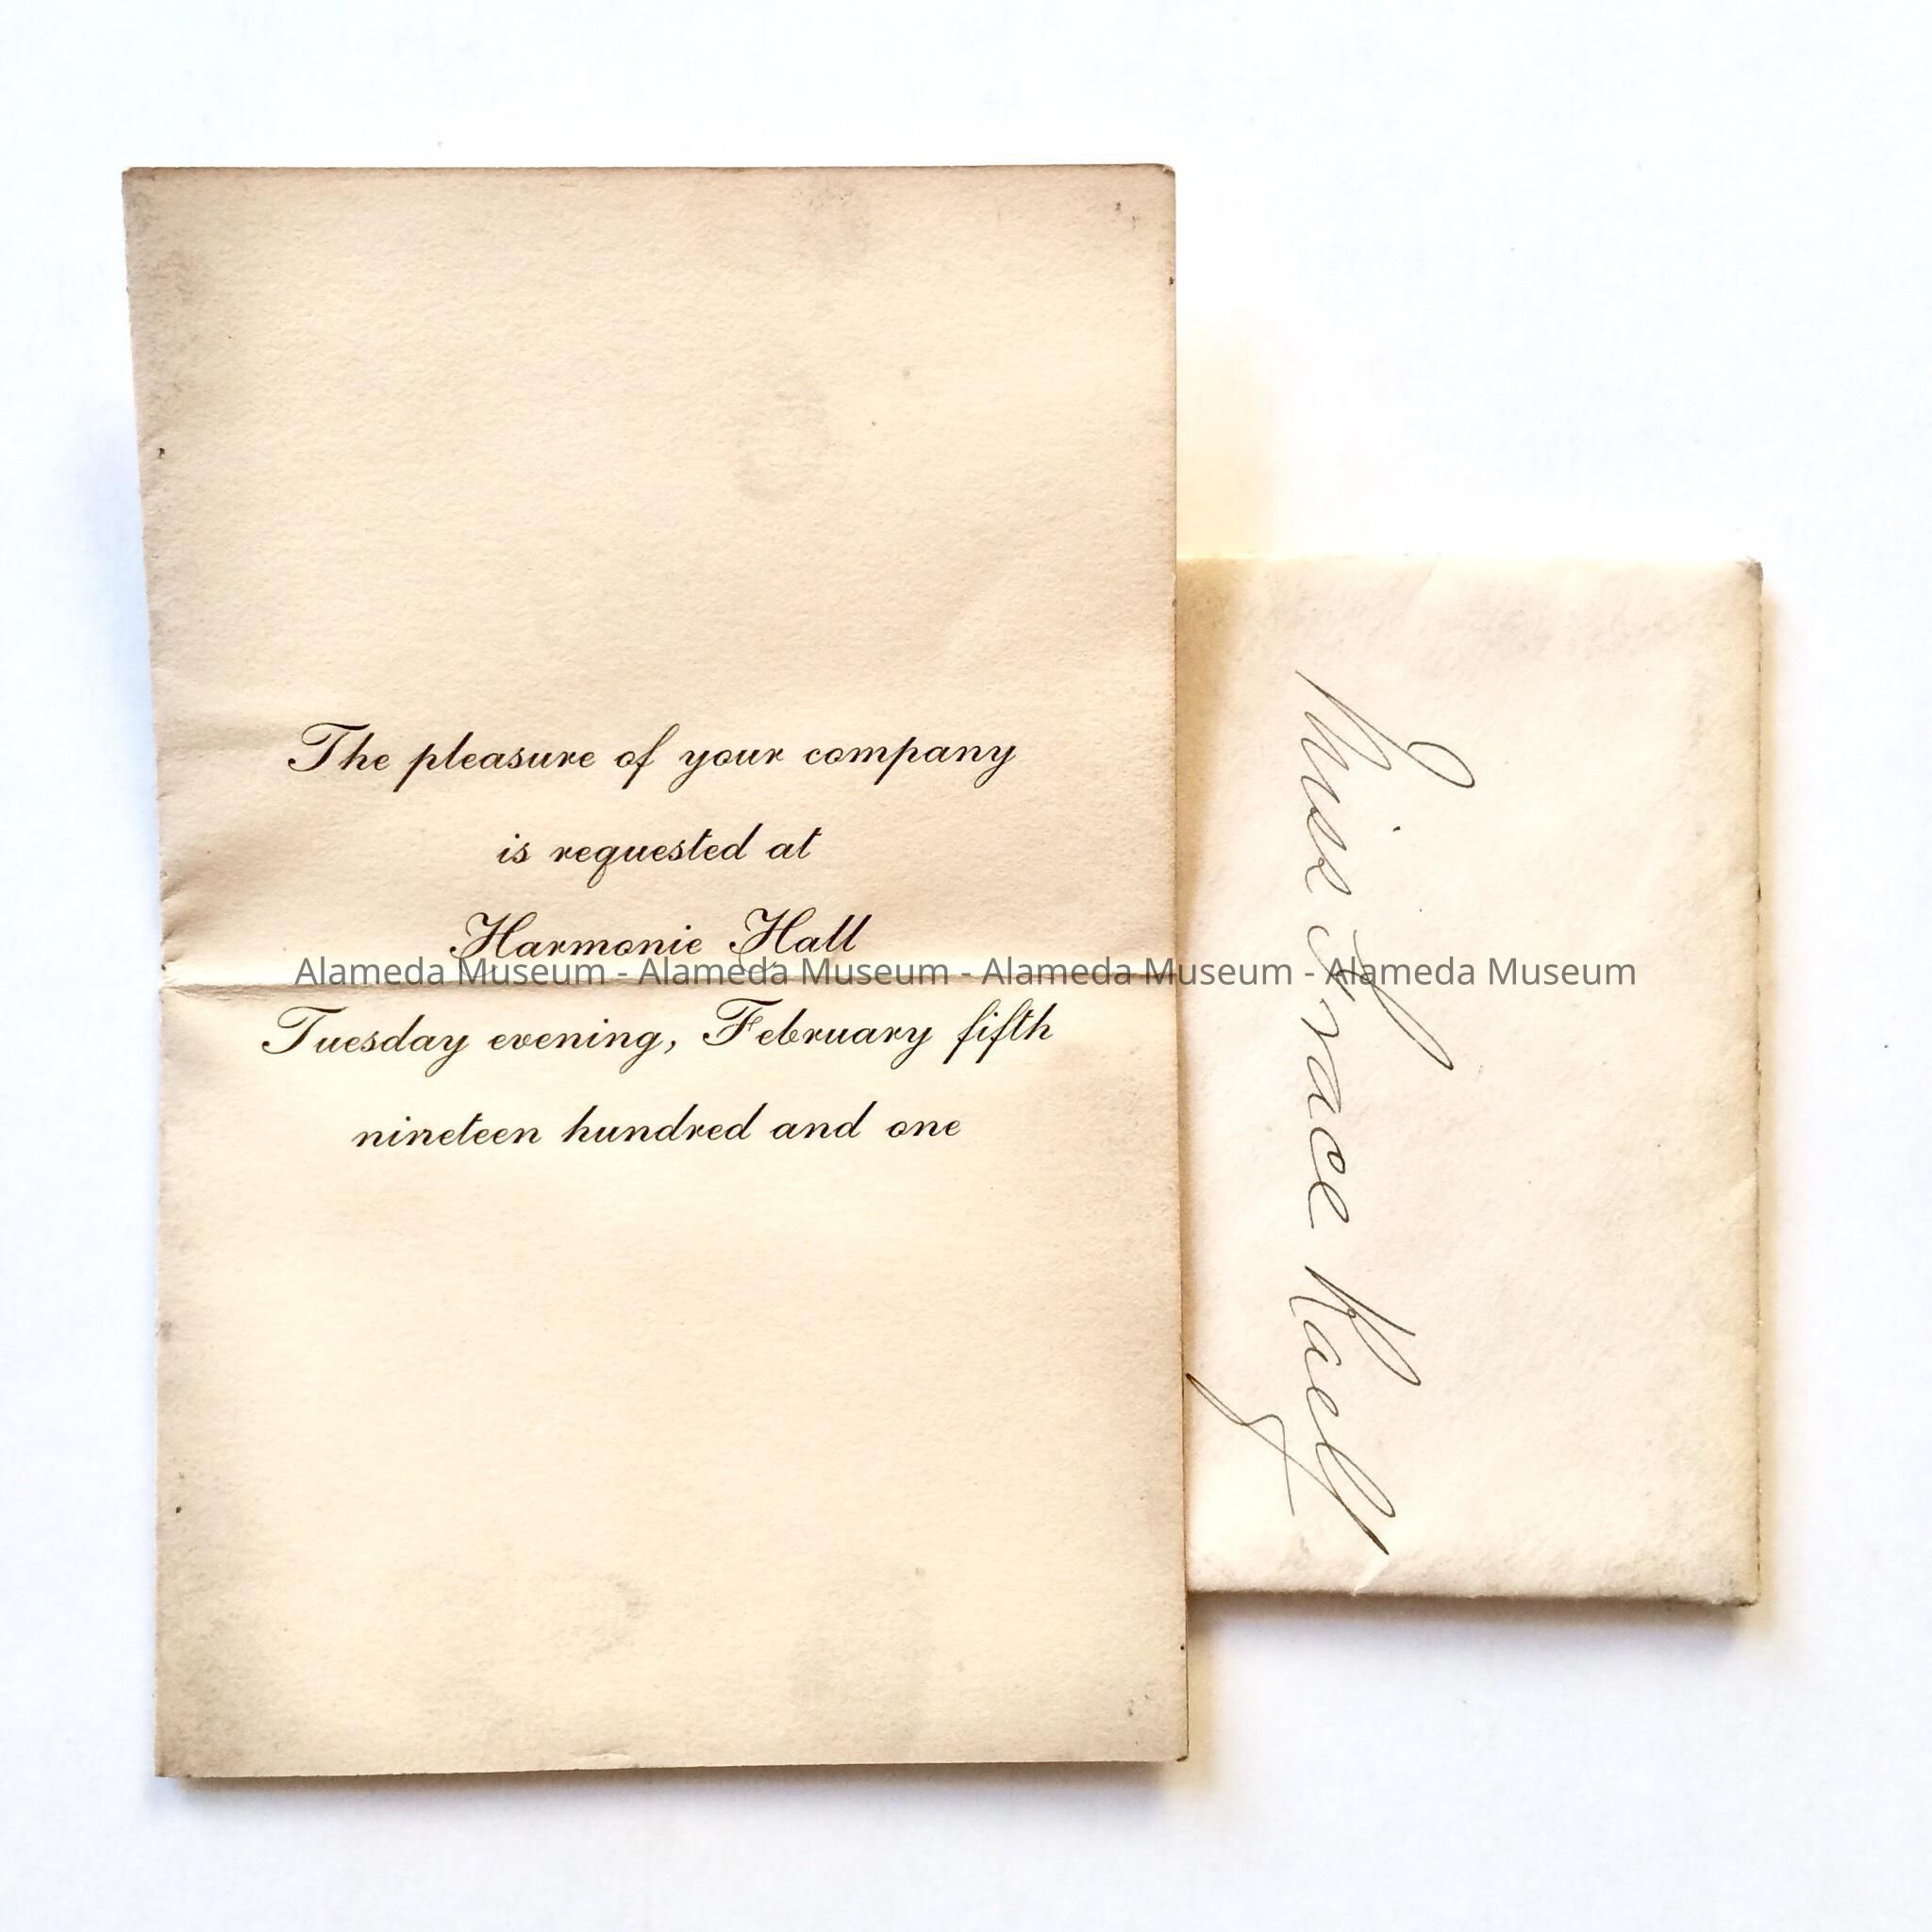 The pleasure of your company
is requested at
Harmonie Hall
Tuesday evening, February fifth
nineteen hundred and one
Miss Grace
Alameda Museum - Alameda Museum - Alameda Museum - Alameda Museum